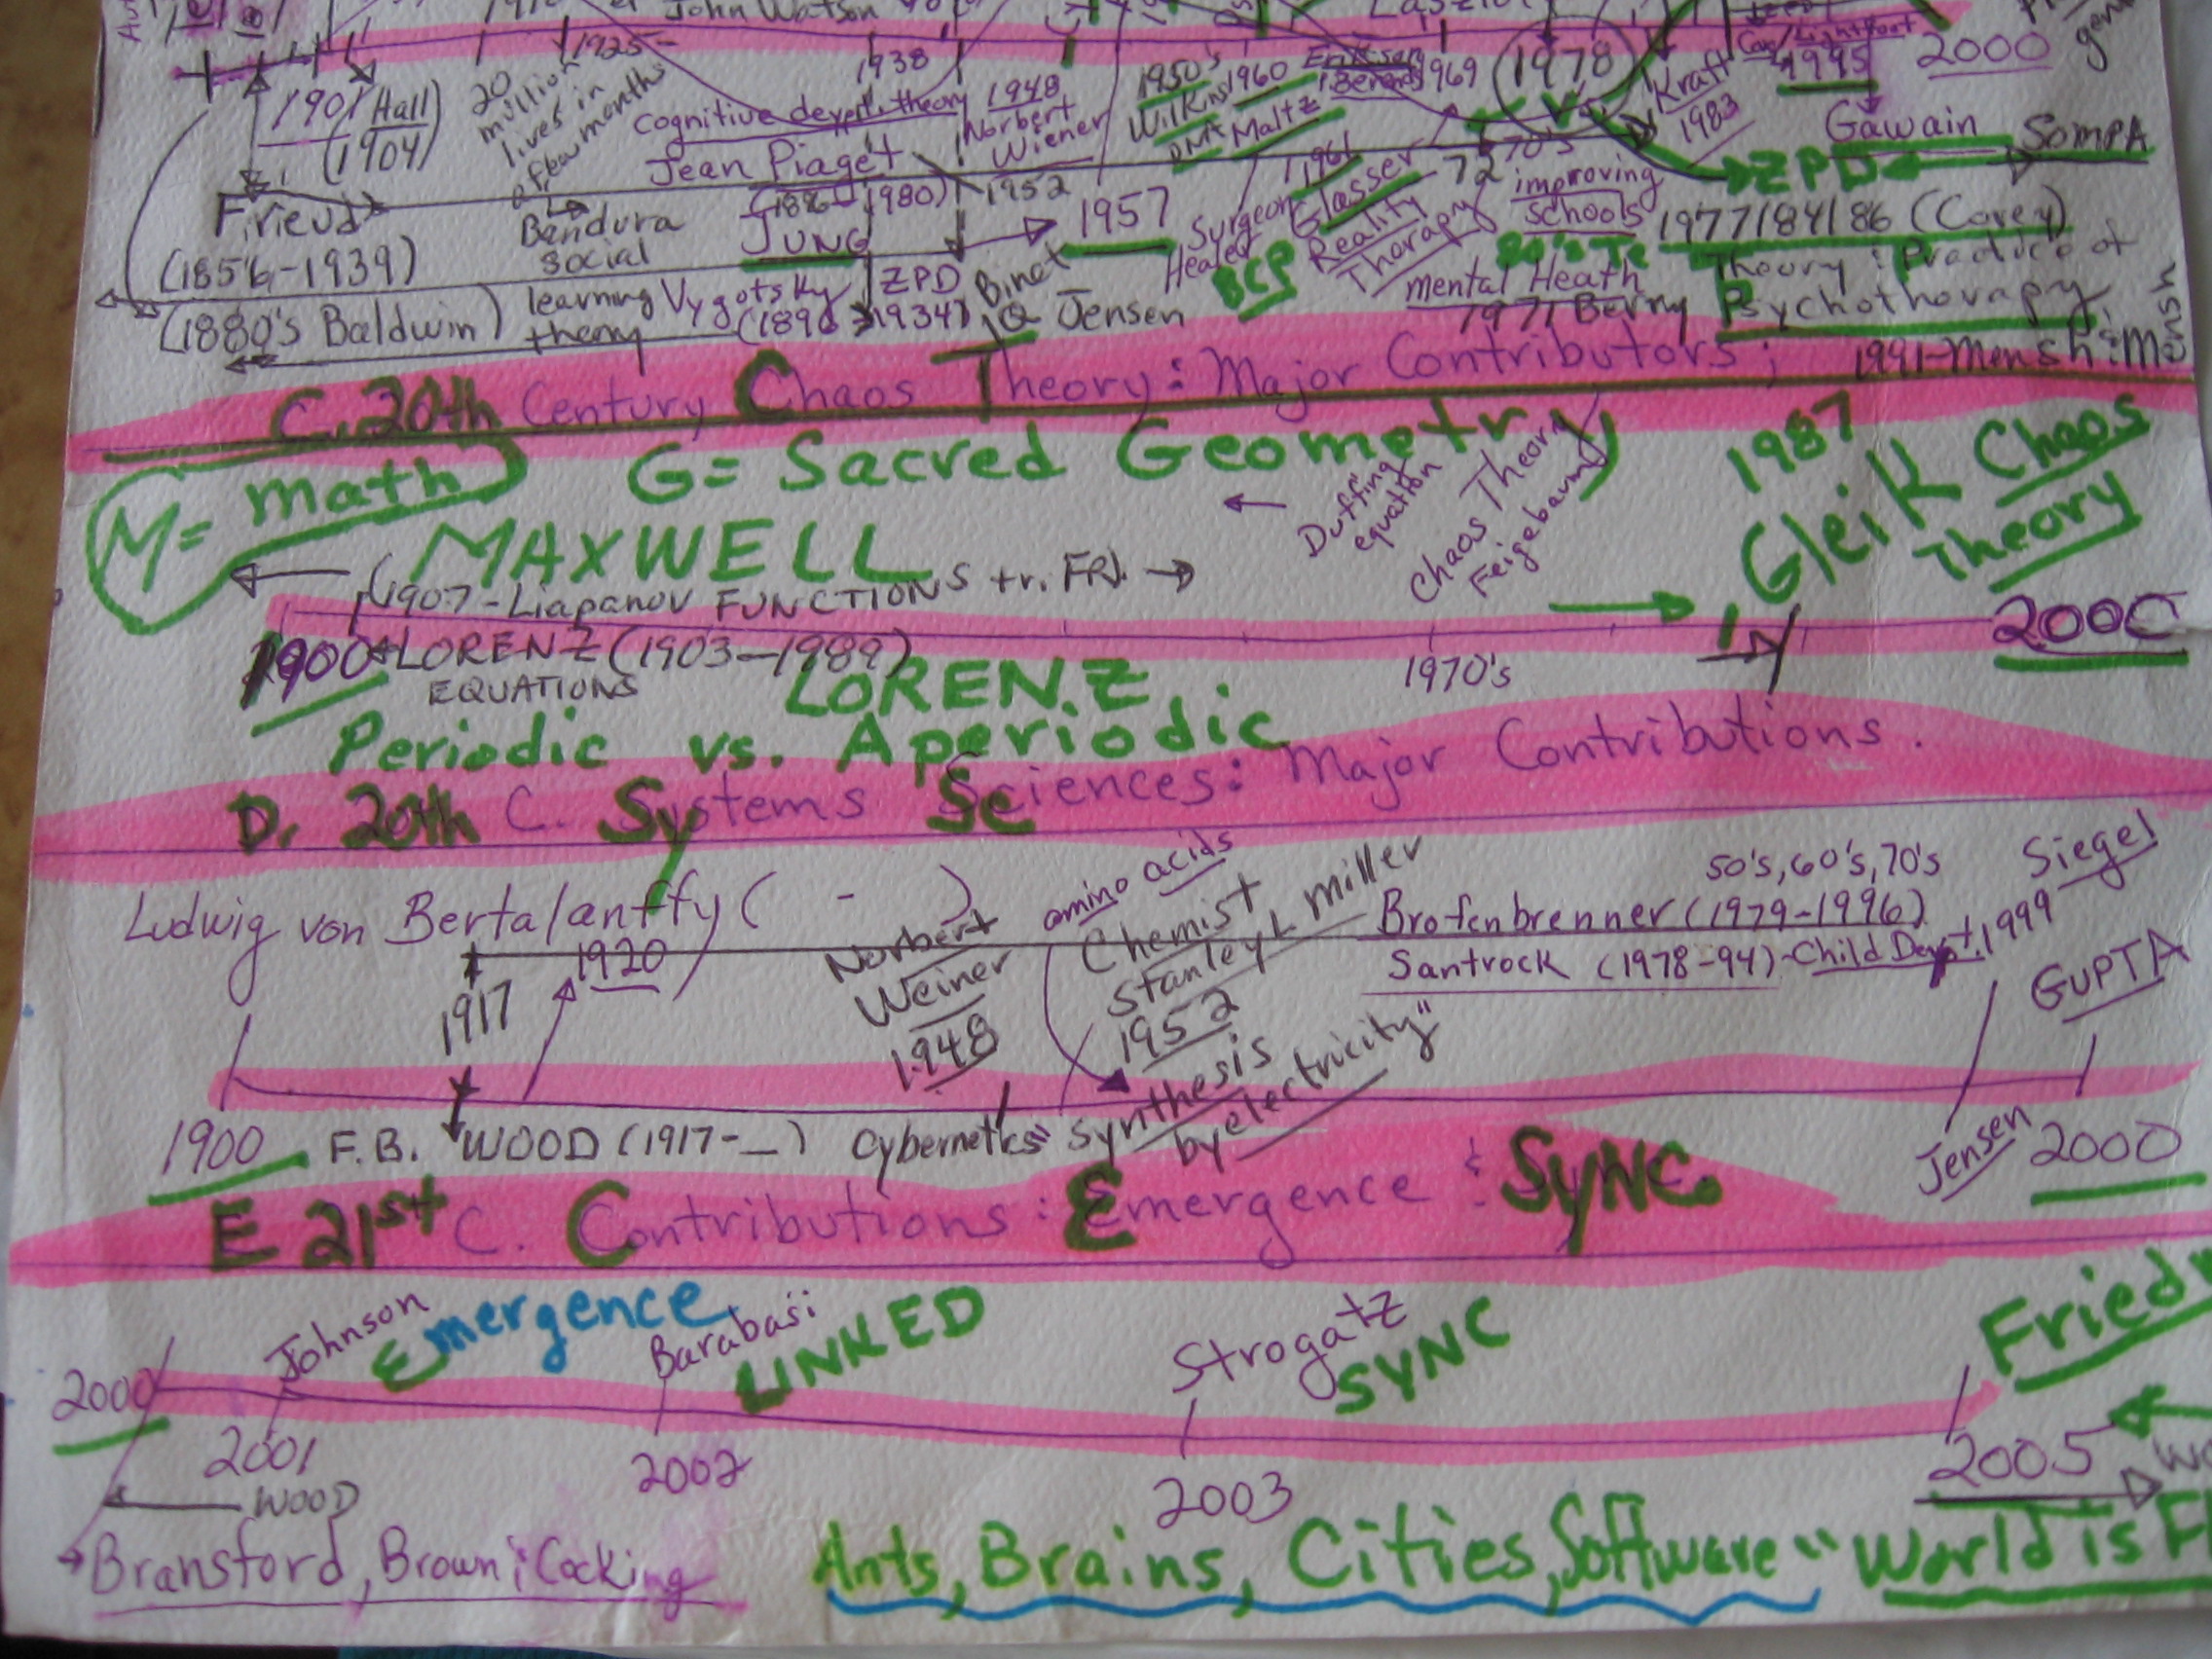 John Watson
1925-
1938
1950's
1960
1969
1978
1995
2000
1901
Hall
(1904)
20
million
lives in
a few months
cognitive devpt. theory
Jean Piaget
(1896-1980)
1948
Norbert
Wiener
1952
Wilkins
Maltz
Kraft
1983
Gawain
SompA
ZPD
Frieud
(1856-1939)
Bandura
social
learning
theory
JUNG
1957
1961
Glasser
Reality
Therapy
Surgeon
Healer
BCP
72
70's
improving
schools
80's Te
1977/84/86 (Covey)
Theory: Product of
Psychotherapy
mental Heath
1971 Berny
(1880's Baldwin)
Vygotsky
(1896 1934)
ZPD
Binet
IQ Jensen
1991-Mensh
C. 20th Century Chaos Theory: Major Contributors;
M= math
G= Sacred Geometry
MAXWELL
Duffing
equation
Chaos Theory
Feigebaum
1987
Gleik Chaos
Theory
(1907-Liapanov FUNCTIONS tr. FR).
1900
LORENZ (1903-1989)
EQUATIONS
LORENZ
1970's
2000
Periodic vs. Aperiodic
D. 20th C. Systems Sciences: Major Contributions.
Ludwig von Bertalanffy ( - )
1917
1920
Norbert
Weiner
1948
amino acids
Chemist
Stanley L miller
1952
synthesis
by electricity"
50's, 60's, 70's
Brofenbrenner (1979-1996)
Santrock (1978-94)-Child Devpt.
1999
Siegel
GUPTA
1900
F.B. WOOD (1917-_)
Cybernetics"
Jensen
2000
E 21st C. Contributions: Emergence & SYNC.
Johnson
Emergence
Barabasi
LINKED
Strogatz
SYNC
2000
2001
2002
2003
2005
WOOD
Bransford, Brown & Cocking
Ants, Brains, Cities, Software "World is